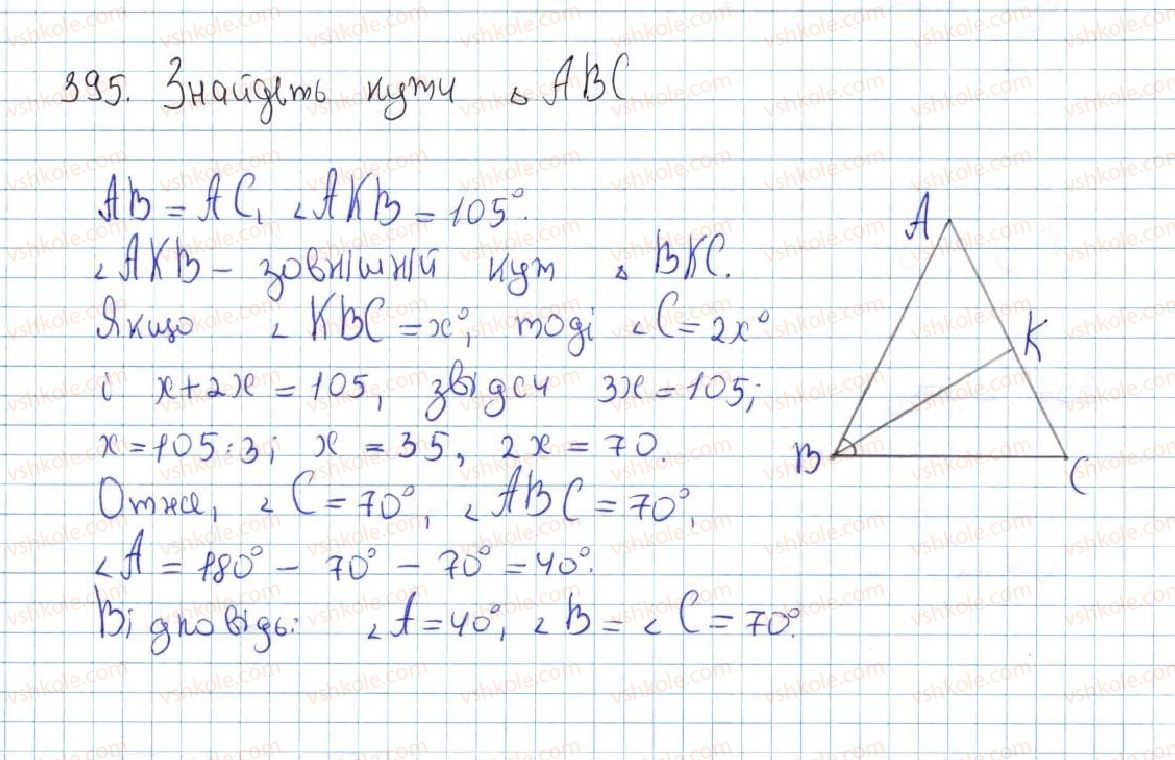 395. Знайдеть кути △ ABC
AB = AC, ∠AKB = 105°.
∠AKB – зовнішній кут △ BKC.
Якщо ∠KBC = x°, тоді ∠C = 2x°
і x + 2x = 105, звідси 3x = 105;
x = 105 : 3; x = 35, 2x = 70.
Отже, ∠C = 70°, ∠ABC = 70°,
∠A = 180° – 70° – 70° = 40°.
Відповідь: ∠A = 40°, ∠B = ∠C = 70°.
A
K
B
C
vshkole.com